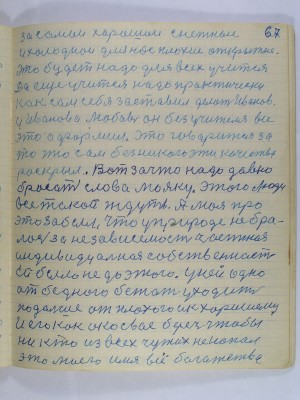 за самым хорошим снежным 67
и холодной для нас плохие открытие.
Это будет надо для всех учится
Да еще учится надо практически
Как сам себя заставил делать Иванов.
У Иванова Любавь он без учителя всё
это оформил. Это говорится за
то что сам без никого эти качества
раскрыл. Вот за что надо давно
бросать слова маяку. Этого люди
все такой ждут. А мая про
это забыл, что у природе не бра-
лось за независимость частная
индивидуалная собственность
Её было не до этого. У ней одно
от бедного бежат уходить
подалше от плохого и к хорошему
И его как окосвае бреч чтобы
ни кто из всех чужих не напал
это моего имя всё богатства